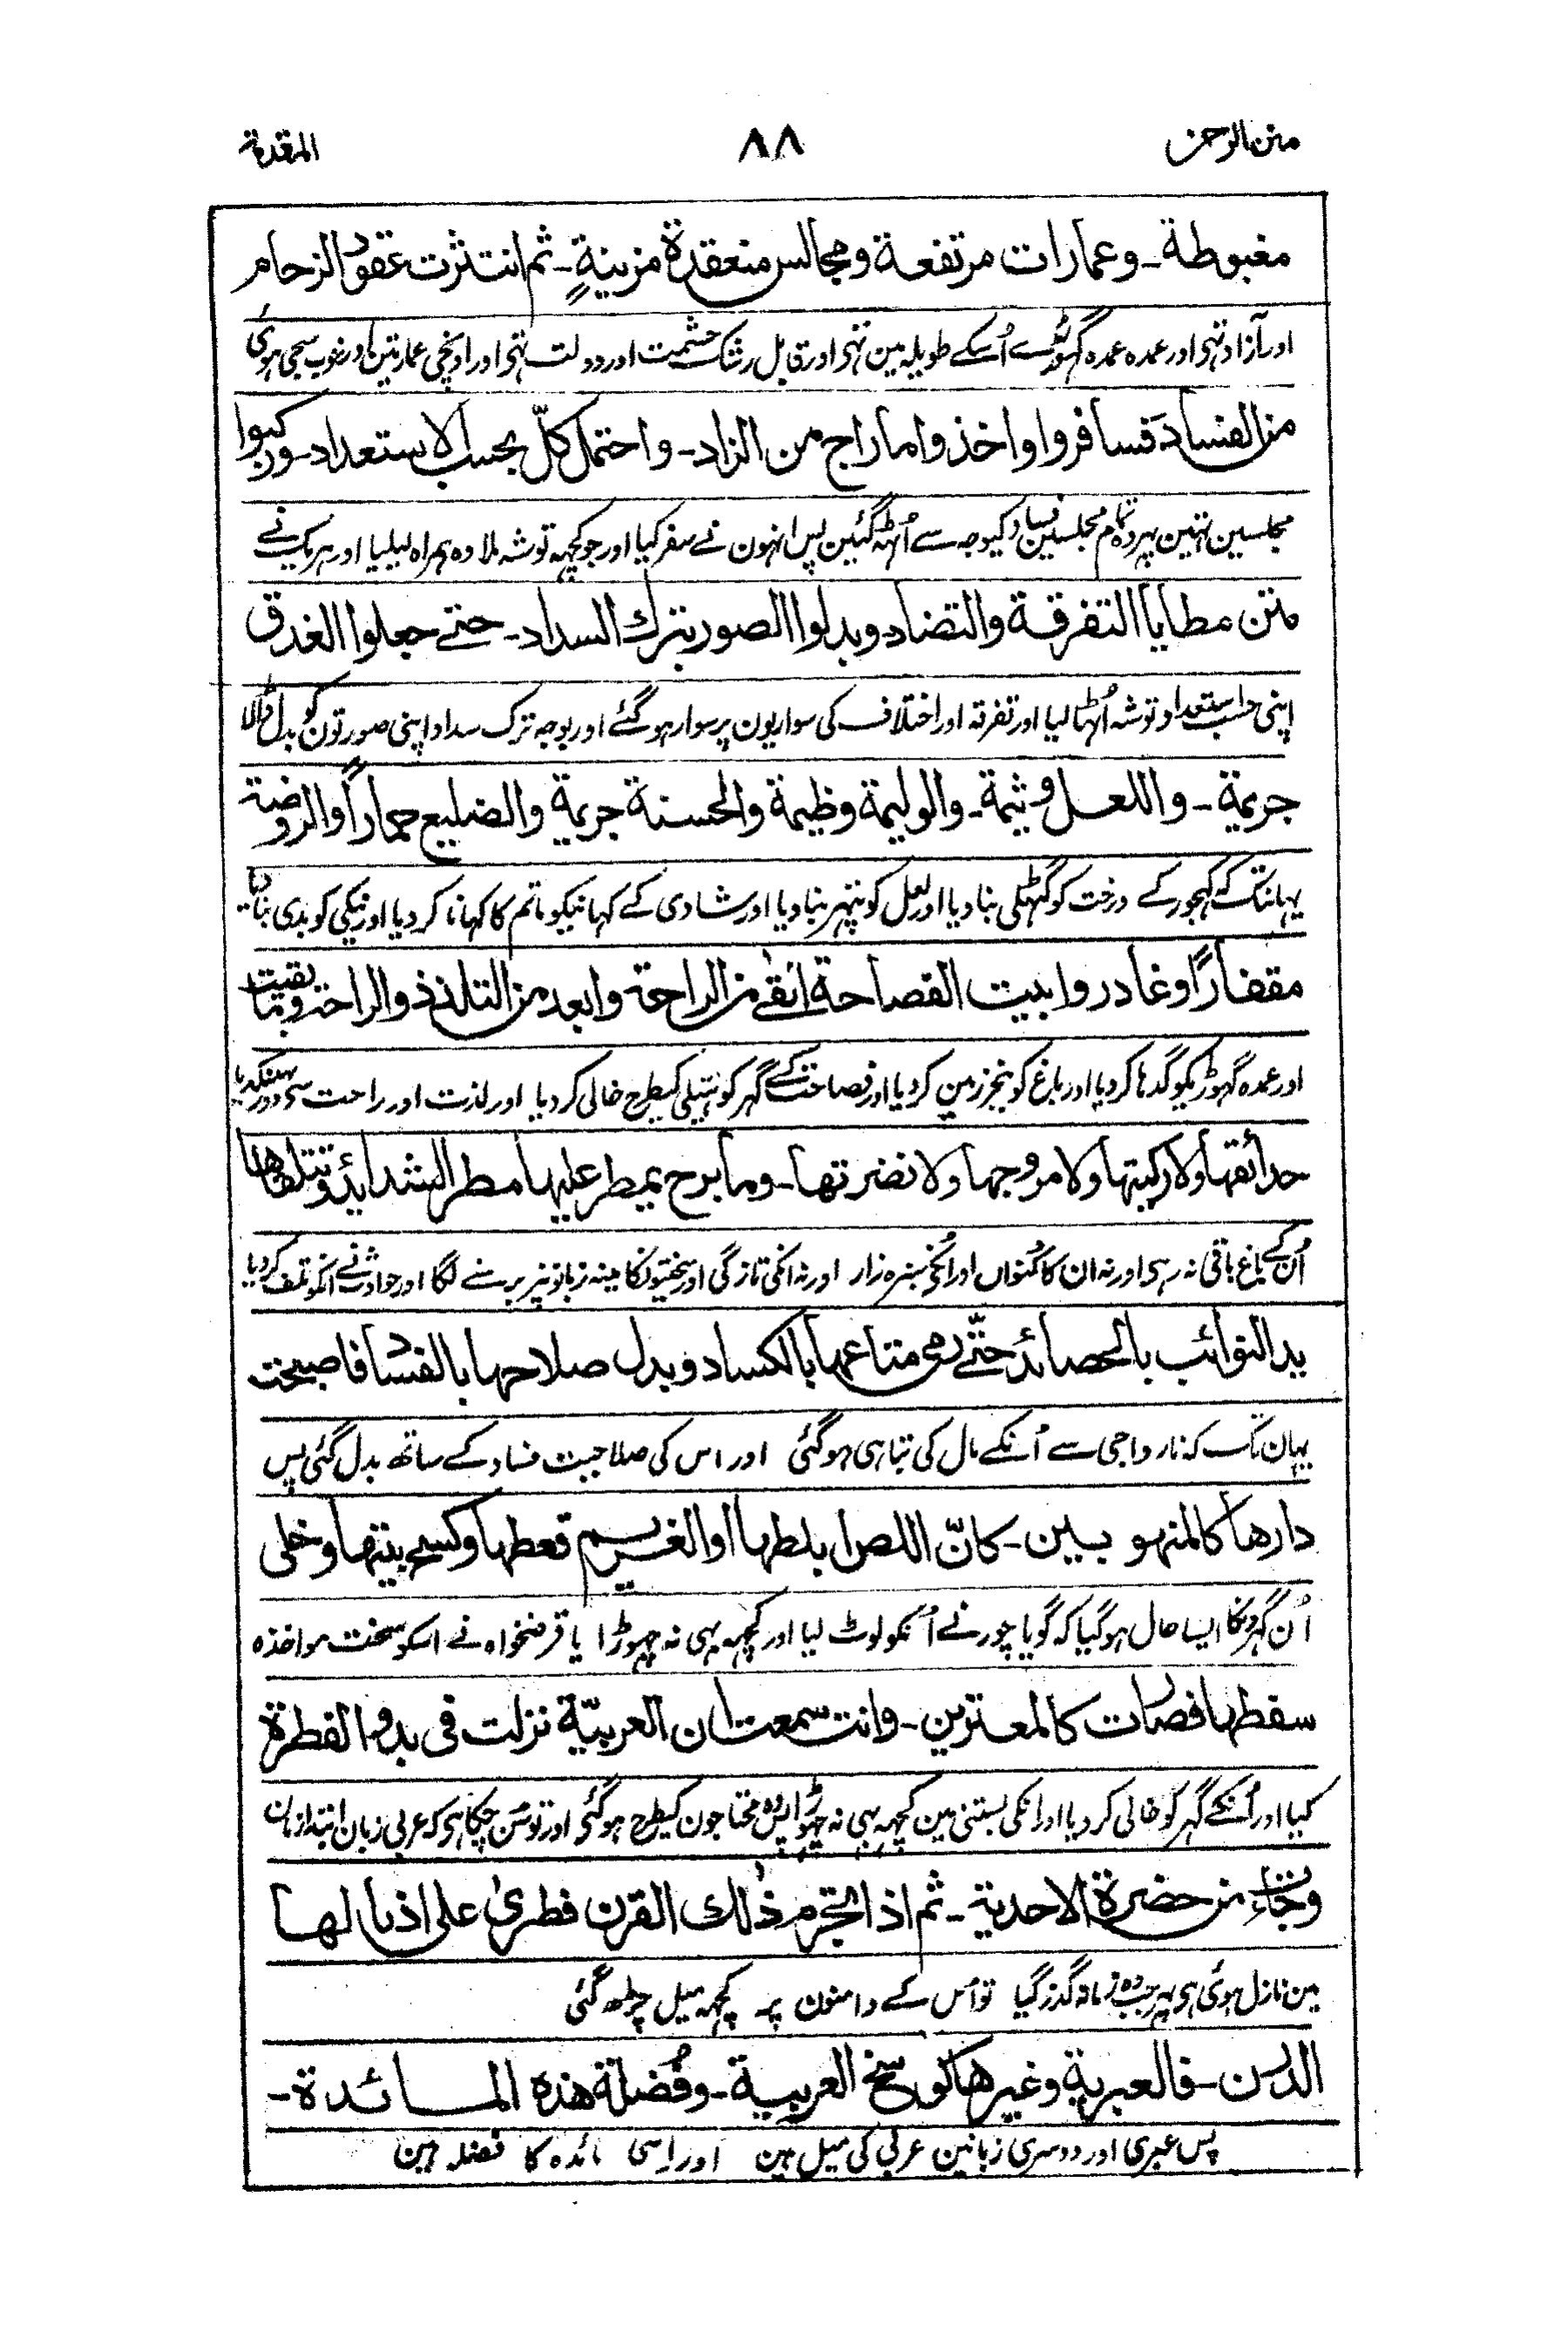 منن الرحمن ٨٨ المقدمة
مغبوطة۔ وعمارات مرتفعة ومجالس منعقدة مزينةٍ۔ ثم انتثرت عقود الزحام
اور آزاد تہی اور عمدہ عمدہ گہوڑے اُسکے طویلہ مین تہی اور قابل رشک حشمت اور دولت تہی اور اونچی عمارتین اور خوب سجی ہوئی
من الفساد فسافروا واخذوا ماراج من الزاد۔ واحتمل كلّ بحسب الاستعداد۔ وركبوا
مجلسین تہین پہر وہ تمام مجلسین فساد کیوجہ سے اُٹھ گئین پس انہون نے سفر کیا اور جو کچہہ توشہ ملا وہ ہمراہ لیلیا اور ہر یک نے
متن مطايا التفرقة والتضاد وبدلوا الصور بترك السداد۔ حتے جعلوا العذق
اپنی حسب استعداد توشہ اُٹہا لیا اور تفرقہ اور اختلاف کی سواریون پر سوار ہو گئے اور بوجہ ترک سداد اپنی صورتون کو بدل ڈالا
جريمة۔ واللعل وثيمة۔ والوليمة وظيمة والحسنة جريمة والضليع حماراً والروضة
یہانتک کہ کہجور کے درخت کو گٹہلی بنا دیا اور لعل کو پتہر بنا دیا اور شادی کے کہانیکو ماتم کا کہانا کر دیا اور نیکی کو بدی بنا دیا
مقفاراً وغادروا بيت الفصاحة انقٰے من الراحة وابعد من التلذذ والراحة وما بقيت
اور عمدہ گہوڑیکو گدہا کر دیا اور باغ کو بنجر زمین کر دیا اور فصاحت کے گہر کو ہتیلی کیطرح خالی کر دیا اور لذت اور راحت سے دور پہینکدیا
حدائقها ولا ركيتها ولا مروجها ولا نضرتها۔ وما برح يمطر عليها مطر الشدائد وتتلقاها
اُن کے باغ باقی نہ رہی اور نہ ان کا کنواں اور انکی سبزہ زار اور نہ انکی تازگی اور سختیونکا مینہ زبانونپر برسنے لگا اور حوادث نے انکو تلف کر دیا
يد النوائب بالحصائد حتّے رمی متاعها بالكساد وبدل صلاحها بالفساد فاصبحت
یہان تک کہ نارواجی سے اُنکے مال کی تباہی ہو گئی اور اس کی صلاحیت فساد کے ساتھ بدل گئی پس
دارها كالمنهوبين۔ كانّ اللص ابلطها او الغريم قعطها وكسح بيتها وخلى
اُن گہرونکا ایسا حال ہو گیا کہ گویا چور نے اُنکو لوٹ لیا اور کچہہ بہی نہ چہوڑا یا قرضخواہ نے اسکو سخت مواخذہ
سقطها فصارت كالمعترين۔ وانت سمعت ان العربيّة نزلت فی بدو الفطرة
کیا اور اُنکے گہر کو خالی کر دیا اور انکی بستنی مین کچہہ بہی نہ چہوڑا پس وہ محتاجون کیطرح ہو گئی اور تو سن چکا ہی کہ عربی زبان ابتدا زمان
وجاءت من حضرة الاحدية۔ ثم اذا تجرم ذٰلك القرن فطری علی اذيالها
مین نازل ہوئی ہی پہر جب وہ زمانہ گذر گیا تو اس کے دامنون پر کچہہ میل چڑھ گئی
الدرن۔ فالعبرية وغيرها كوسخ العربية۔ وفُضلة هذه المائدة۔
پس عبری اور دوسری زبانین عربی کی میل ہین اور اِسی مائدہ کا فضلہ ہین